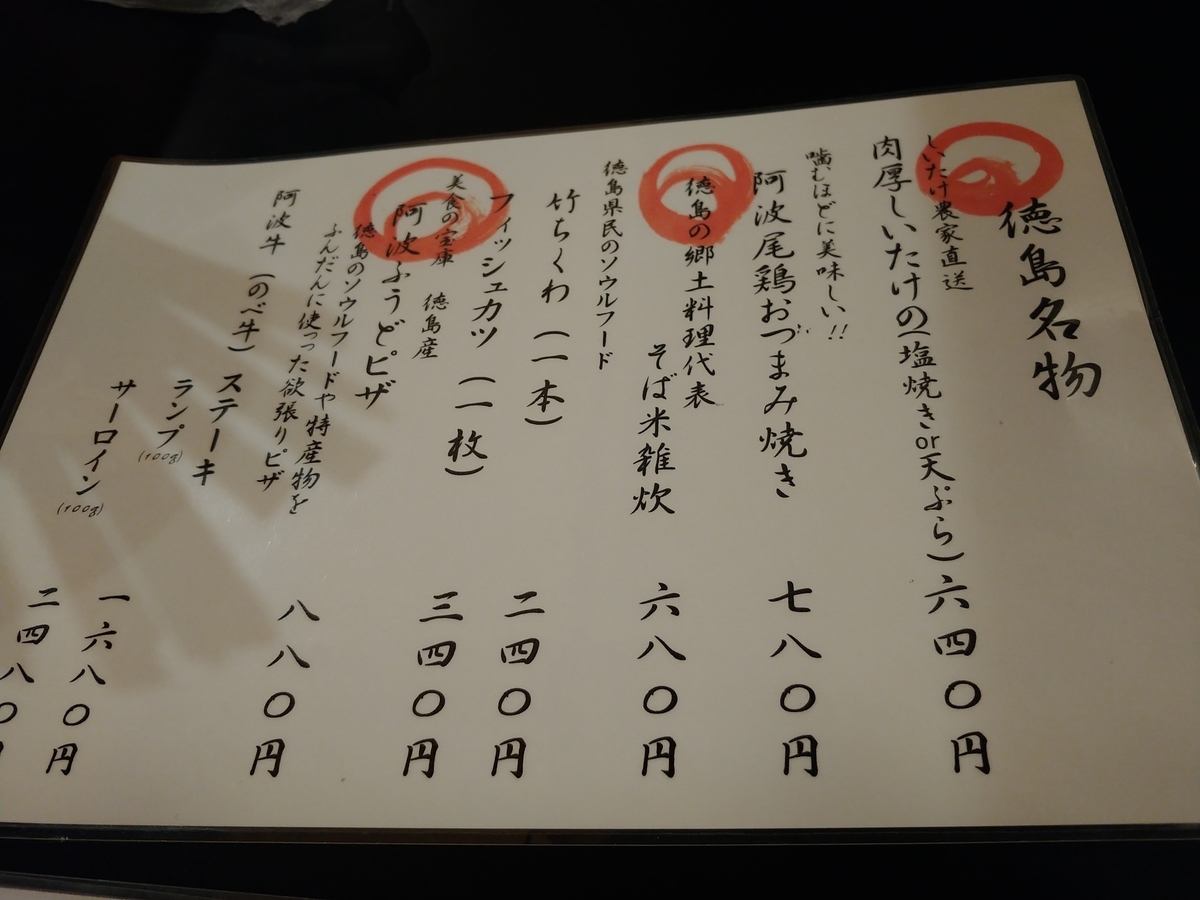 徳島名物
しいたけ農家直送
肉厚しいたけの(塩焼きor天ぷら)六四〇円
噛むほどに美味しい!!
阿波尾鶏おづまみ焼き 七八〇円
徳島の郷土料理代表
そば米雑炊 六八〇円
徳島県民のソウルフード
竹ちくわ(一本) 二四〇円
フィッシュカツ(一枚) 三四〇円
美食の宝庫 徳島産
阿波ふうどピザ 八八〇円
徳島のソウルフードや特産物を
ふんだんに使った欲張りピザ
阿波牛(のべ牛)ステーキ
ランプ(100g) 一六八〇円
サーロイン(100g) 二四八〇円